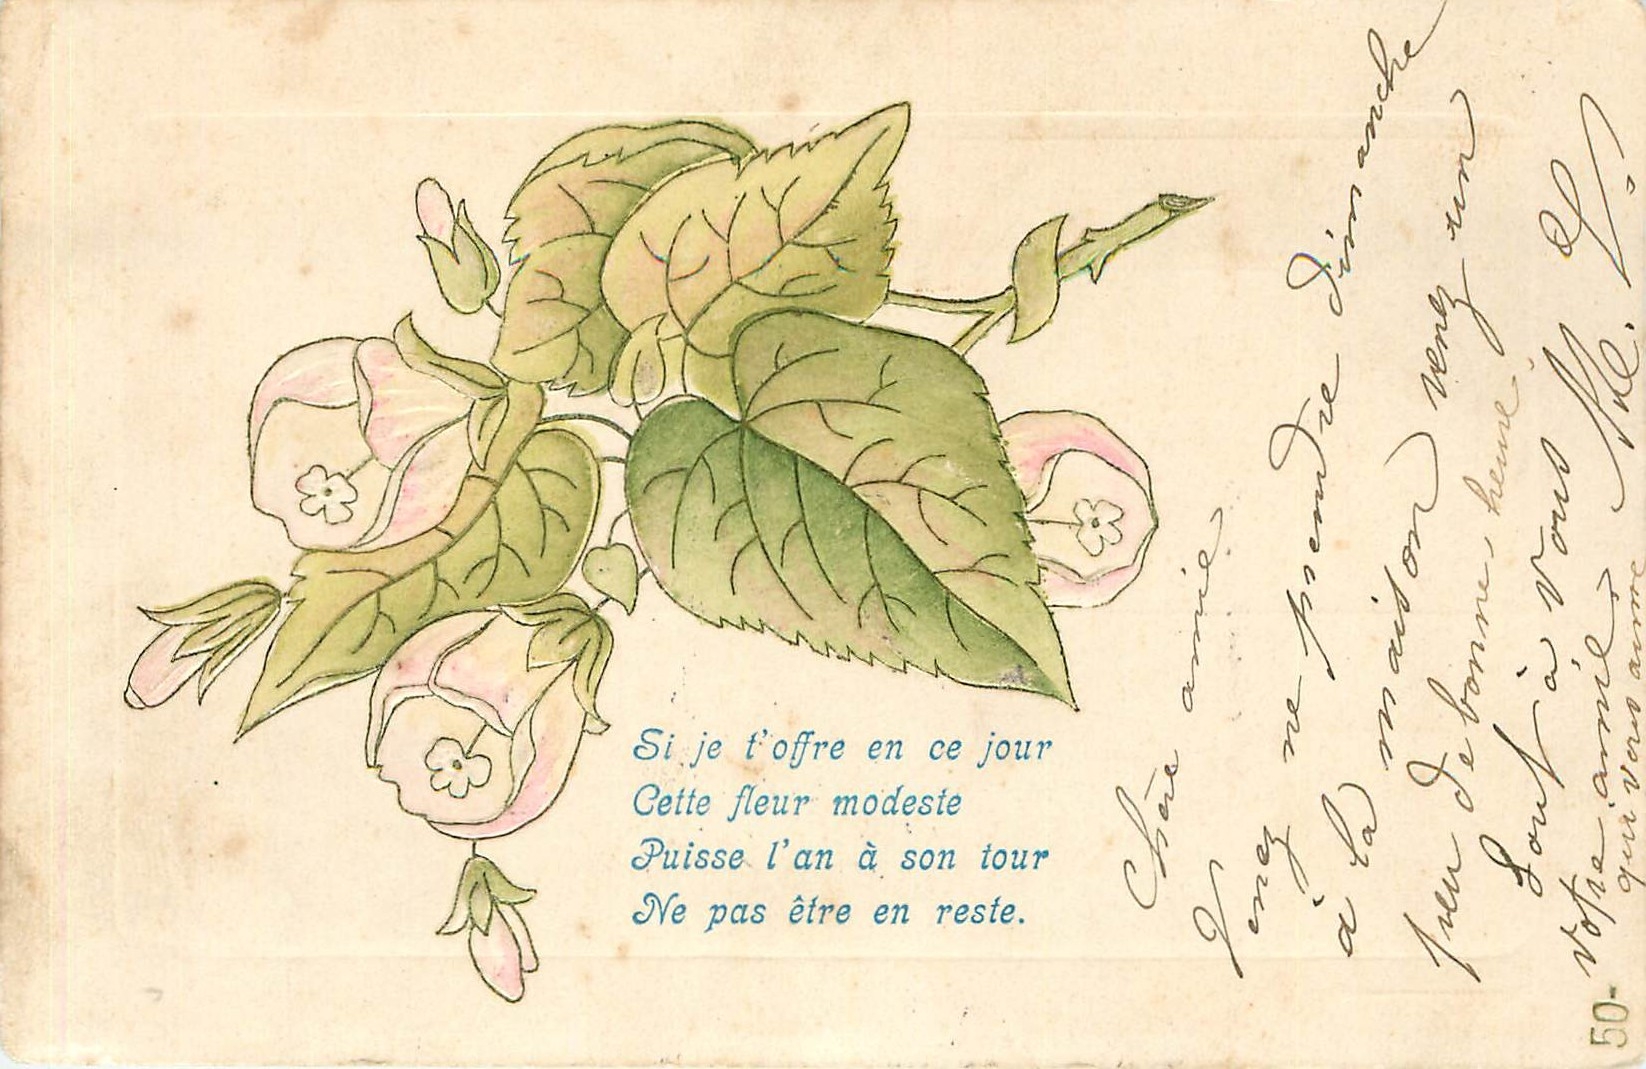 Si je t'offre en ce jour
Cette fleur modeste
Puisse l'an à son tour
Ne pas être en reste.
Chère amie
Venez me prendre dimanche
à la maison venez un
peu de bonne heure
Tout à vous
votre amie
qui vous aime
50-